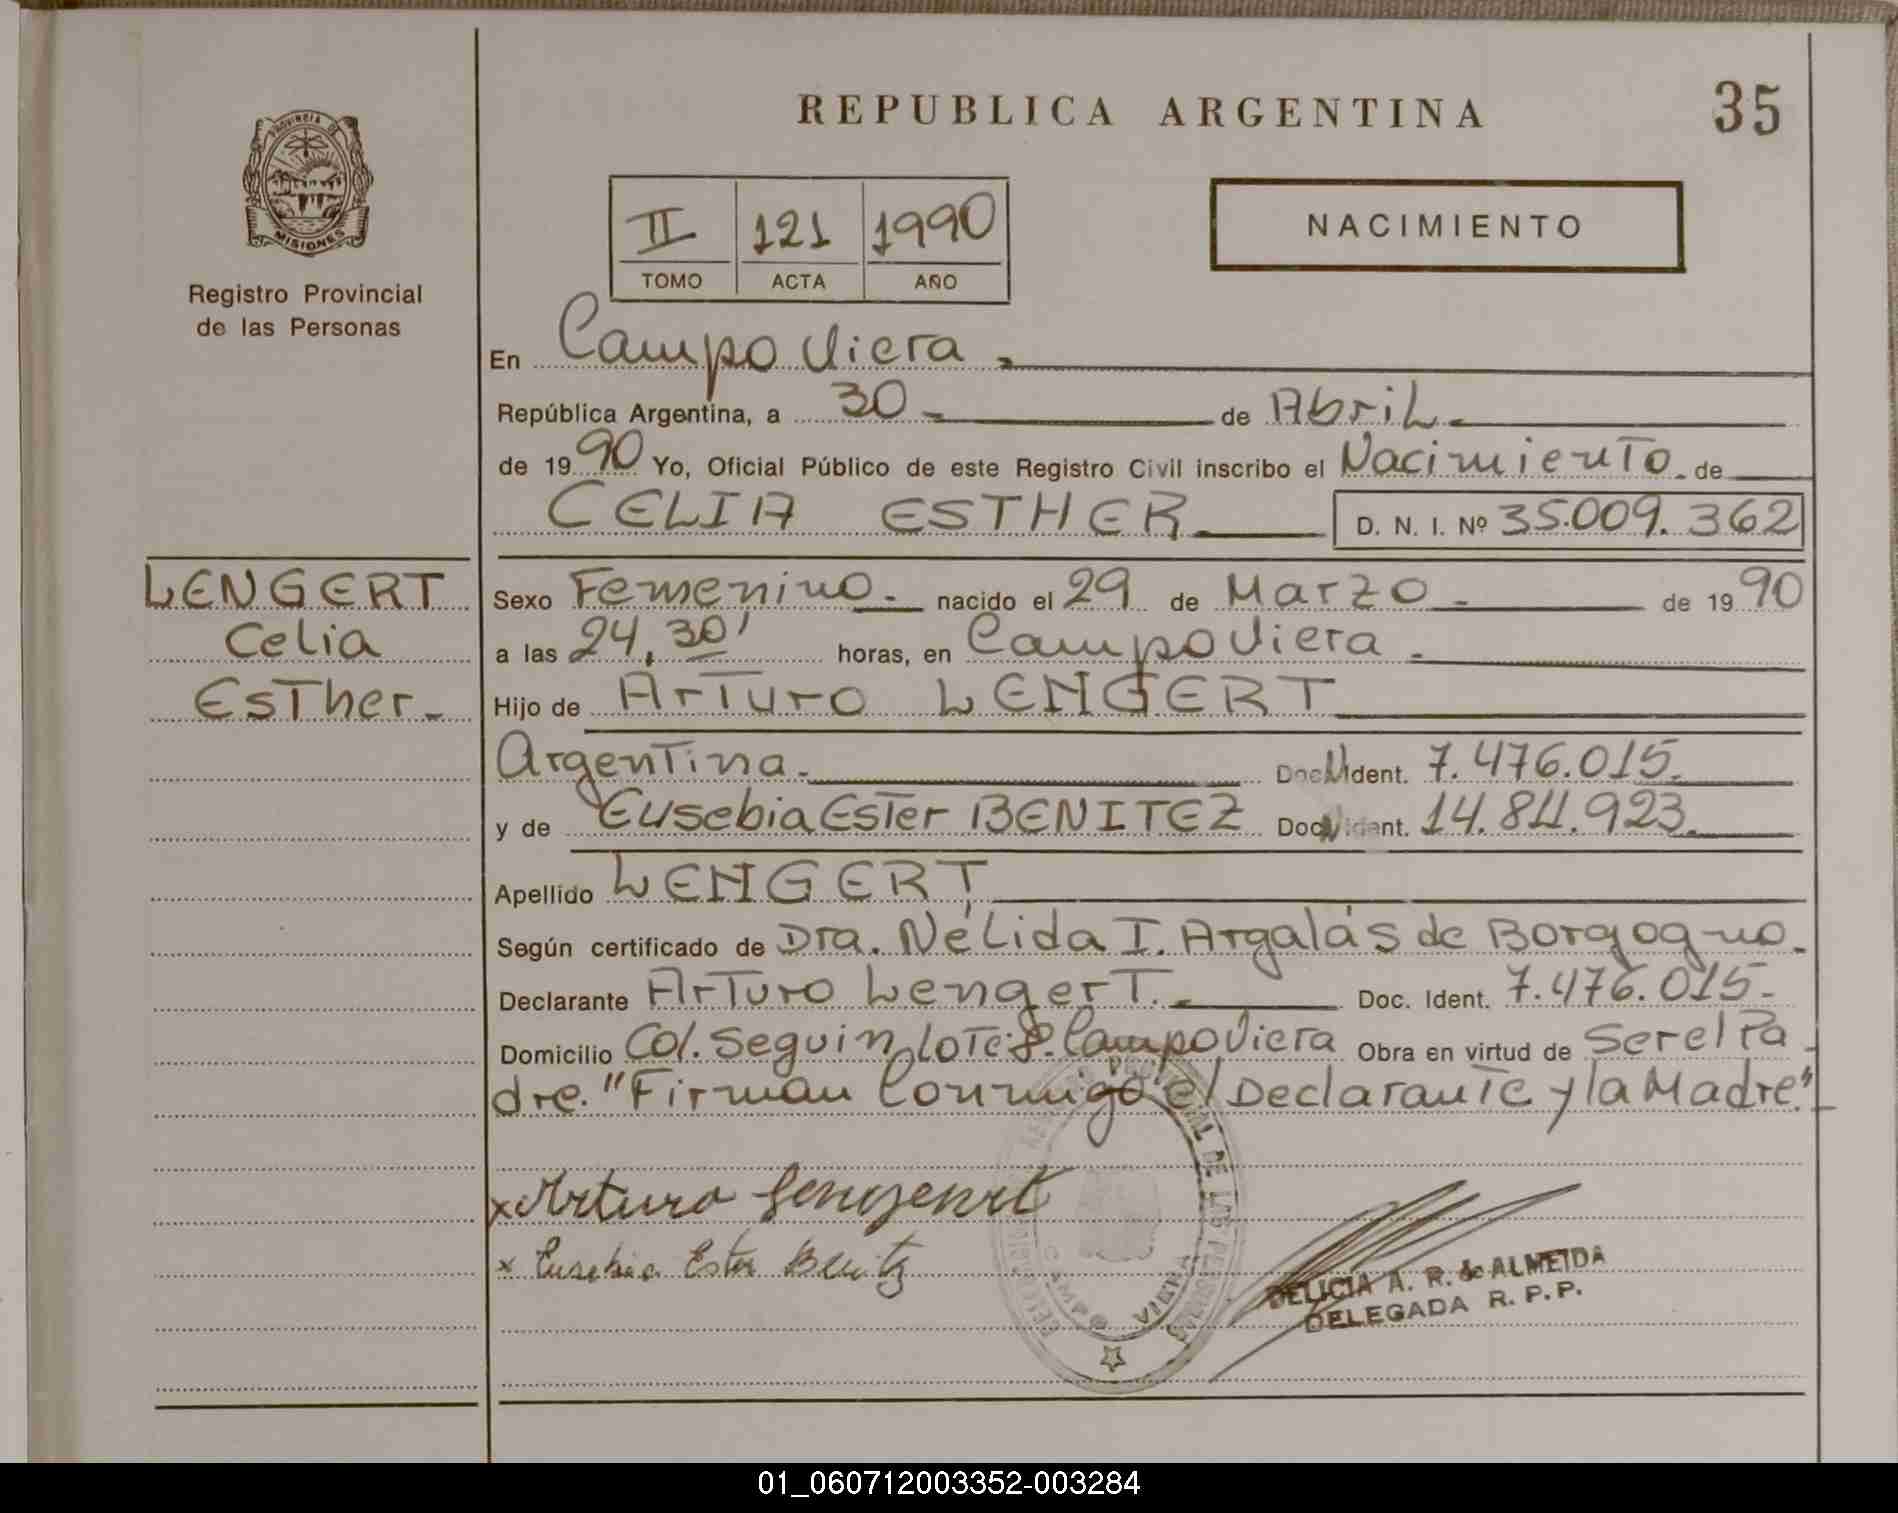 REPUBLICA ARGENTINA
35
PROVINCIA DE
MISIONES
Registro Provincial
de las Personas
II 121 1990
TOMO ACTA AÑO
NACIMIENTO
En Campo Viera.
República Argentina, a 30 de Abril.
de 1990 Yo, Oficial Público de este Registro Civil inscribo el Nacimiento. de
CELIA ESTHER D. N. I. Nº 35.009.362
LENGERT
Celia
Esther.
Sexo Femenino. nacido el 29 de Marzo de 1990
a las 24,30' horas, en Campo Viera.
Hijo de Arturo LENGERT
Argentina. Doc. Ident. 7.476.015.
y de Eusebia Ester BENITEZ Doc. Ident. 14.811.923.
Apellido LENGERT
Según certificado de Dra. Nélida I. Argalás de Borgogno.
Declarante Arturo Lengert. Doc. Ident. 7.476.015.
Domicilio Col. Seguin Lote: 8. Campo Viera Obra en virtud de Ser el Pa
dre. "Firman Conmigo el Declarante y la Madre".
x Arturo Lengert
x Eusebia Ester Benitz
REGISTRO PROVINCIAL DE LAS PERSONAS
CAMPO VIERA
DELICIA A. R. de ALMEIDA
DELEGADA R. P. P.
01_060712003352-003284